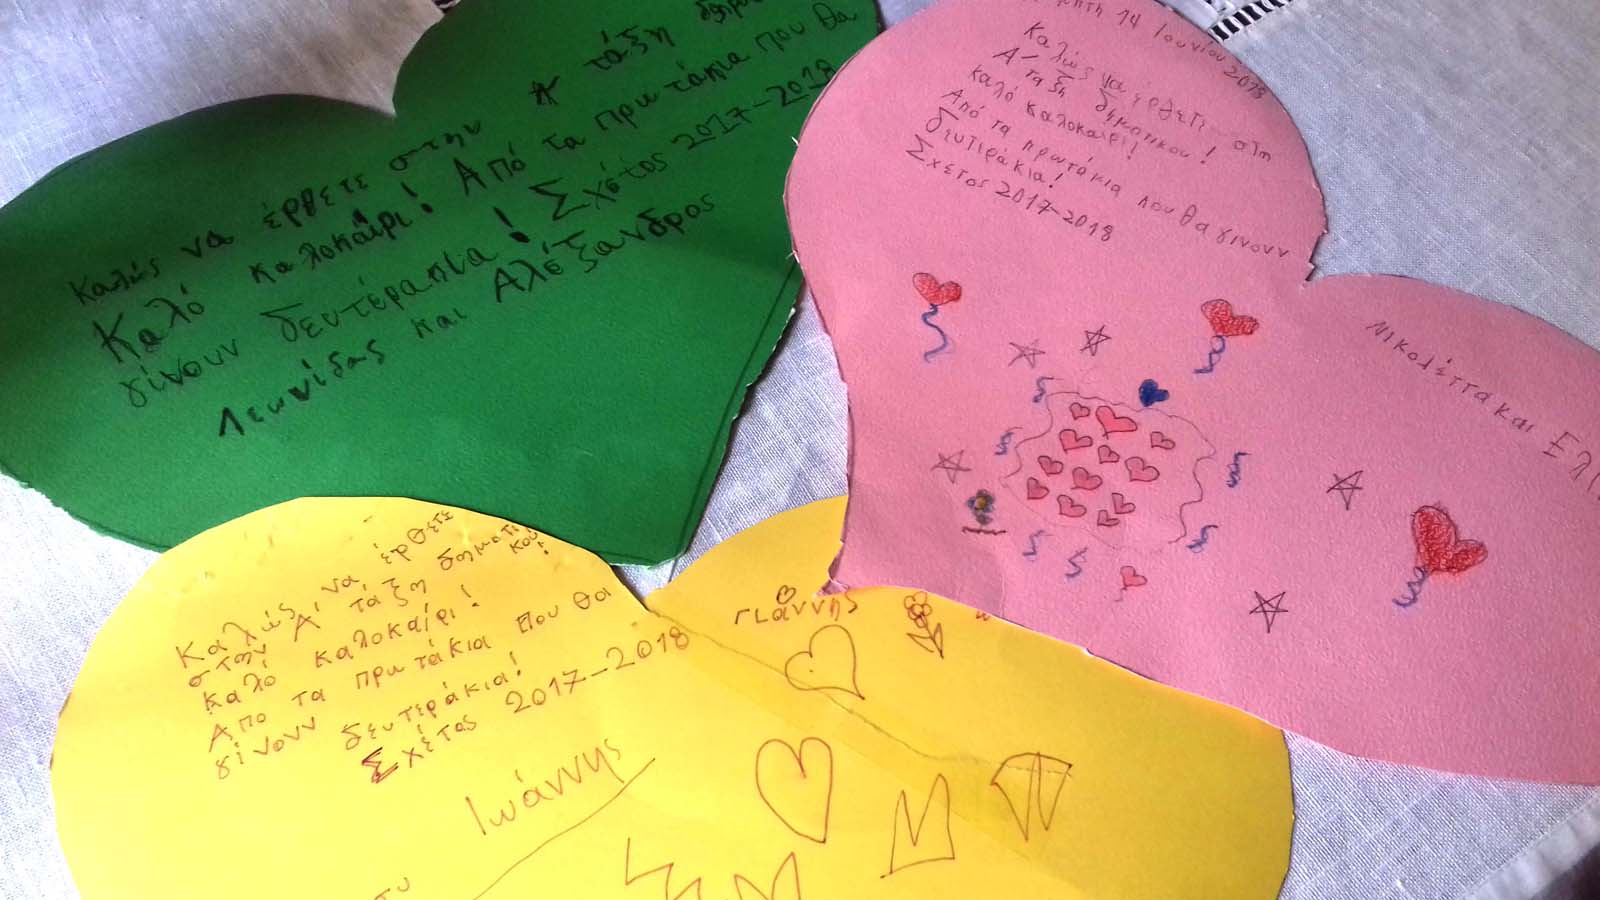 Καλώς να έρθετε στην Α τάξη
Καλό καλοκαίρι! Από τα πρωτάκια που θα
γίνουν δευτέρακια! Σχέτος 2017-2018
Λεωνίδας και Αλέξανδρος
14 Ιουνίου 2018
Καλώς να έρθετε στη
Α' τάξη δημοτικου!
καλό καλοκαίρι!
Από τα πρωτάκια που θα γίνουν
δευτεράκια!
Σχέτος 2017-2018
Νικολέττα και
Καλώς να έρθετε
στην Α' ταξη δημοτι
κου!
καλό καλοκαίρι!
Απο τα πρωτάκια που θα
γίνουν δευτεράκια!
Σχέτος 2017-2018
Ιωάννης
Γιάννης